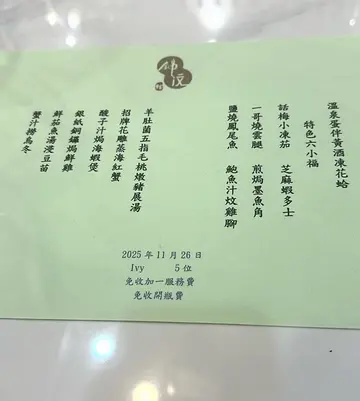 溫泉蛋伴黃酒凍花蛤
特色六小福
話梅小凍茄 芝麻蝦多士
一哥燒雲腿 煎焗墨魚角
鹽燒鳳尾魚 鮑魚汁炆雞腳
羊肚菌五指毛桃燉豬展湯
招牌花雕蒸海紅蟹
酸子汁焗海蝦煲
銀紙銅鑼焗鮮雞
鮮茄魚湯浸豆苗
蟹汁撈烏冬
2025年11月26日
Ivy 5位
免收加一服務費
免收開瓶費